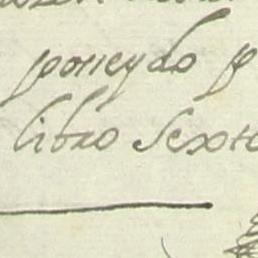 poneydo p
libro Sexto